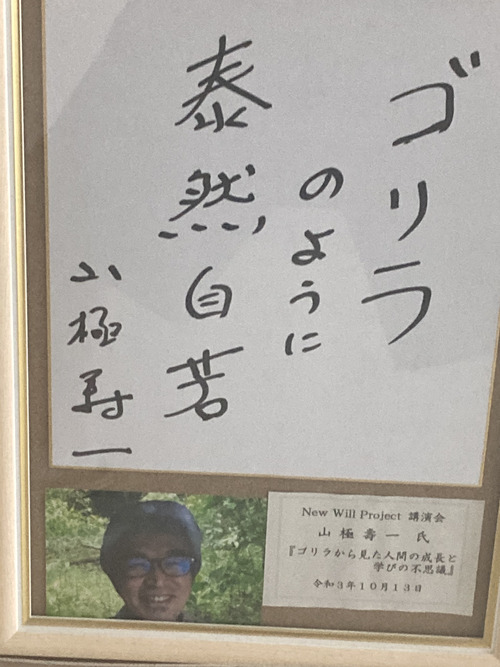 ゴリラ
のように
泰然自若
山極寿一
New Will Project 講演会
山極壽一 氏
『ゴリラから見た人間の成長と
学びの不思議』
令和3年10月13日